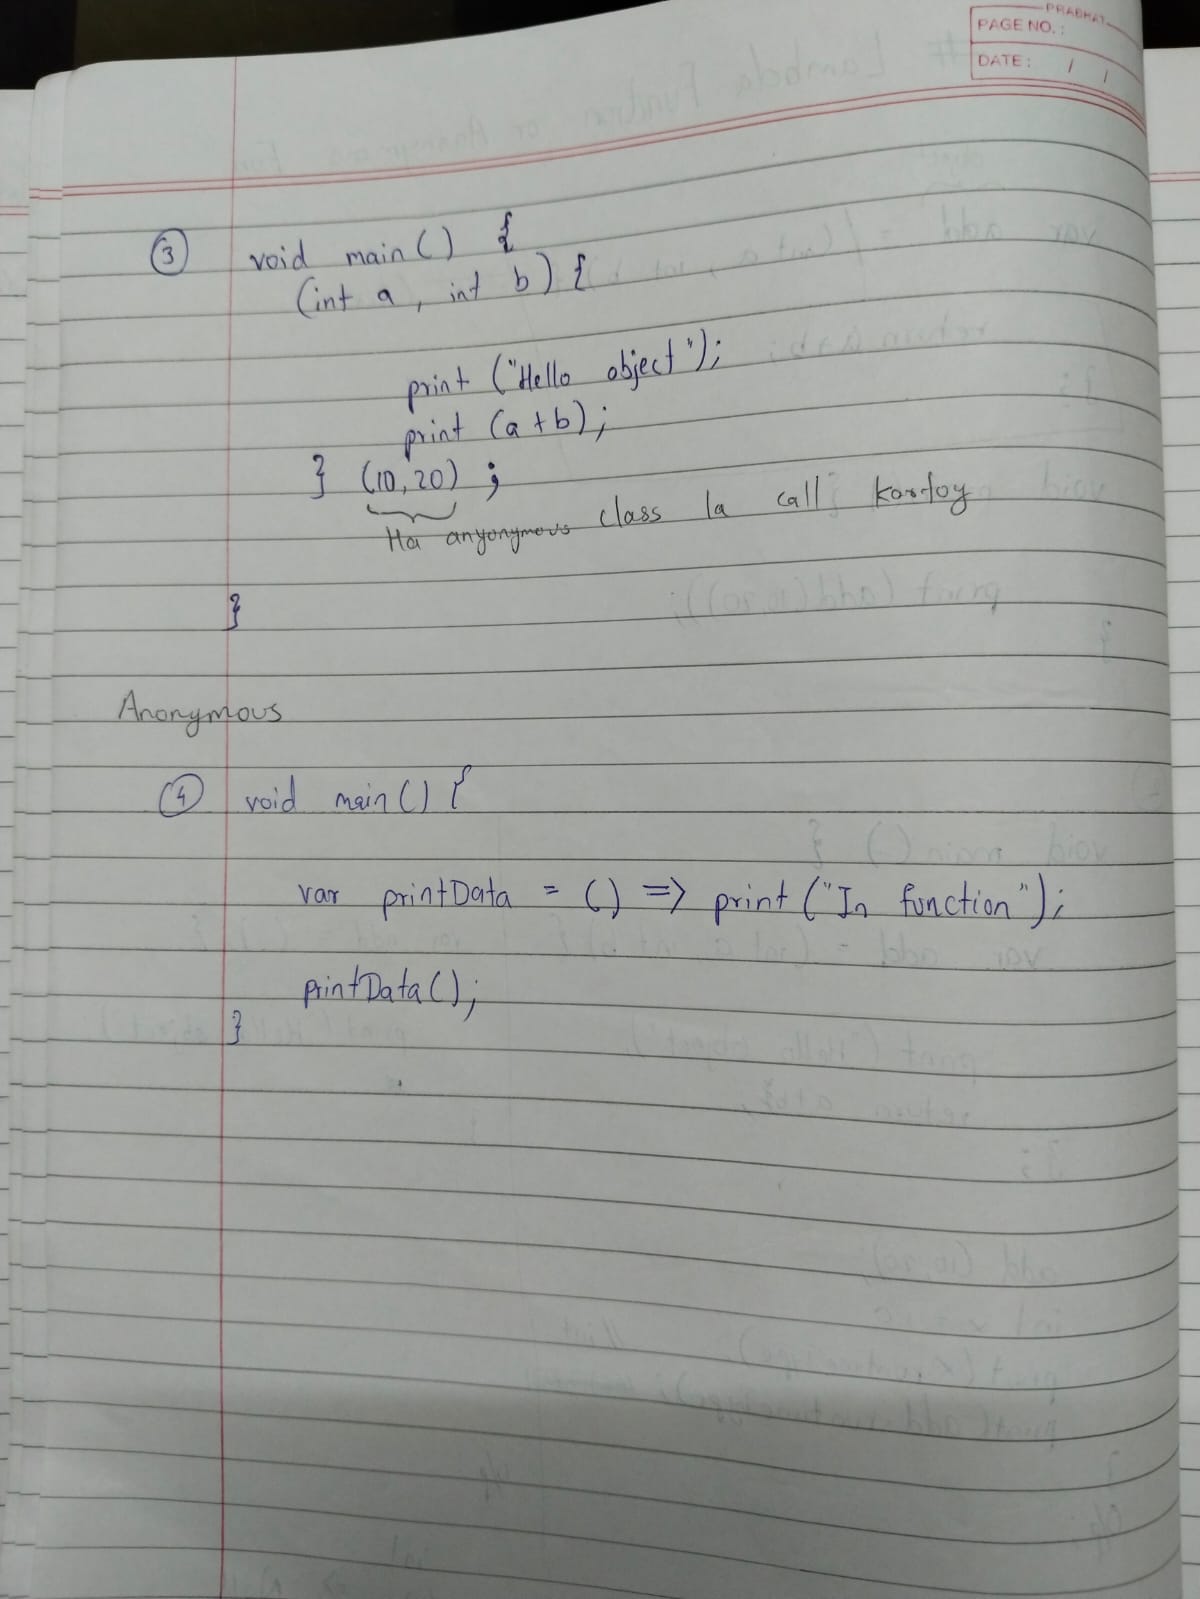 PRABHAT
PAGE NO. :
DATE : / /
③ void main() {
(int a , int b) {
print ("Hello object");
print (a+b);
} (10,20) ;
Ha anyonymous class la call kartoy
}
Anonymous
④ void main() {
var printData = () => print ("In function");
printData();
}